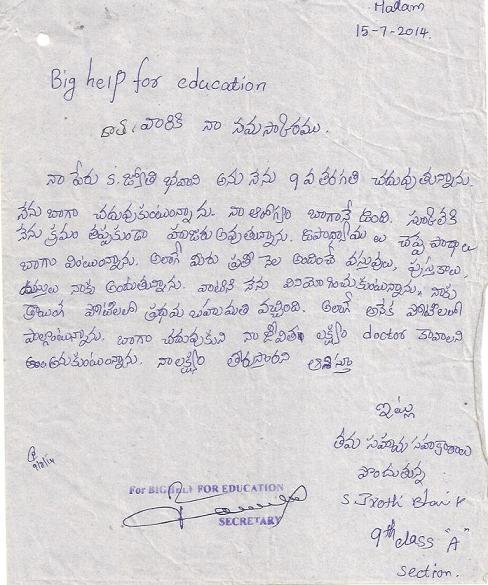 Madam
15-7-2014.
Big help for education
దాత, వారికి నా నమస్కారము.
నా పేరు S. జ్యోతి భవాని అను నేను 9 వ తరగతి చదువుతున్నాను.
నేను బాగా చదువుకుంటున్నాను. నా ఆరోగ్యం బాగానే ఉంది. స్కూలుకి
నేను క్రమం తప్పకుండా హాజరు అవుతున్నాను. ఉపాధ్యాయులు చెప్పే పాఠాలు
బాగా వింటున్నాను. అలాగే మీరు ప్రతి నెల అందించే వస్తువులు, పుస్తకాలు,
దుస్తులు నాకు అందుతున్నాయి. వాటిని నేను వినియోగించుకుంటున్నాను. నాకు
పోటీలలో ప్రథమ బహుమతి వచ్చింది. అలాగే అనేక పోటీలలో
పాల్గొంటున్నాను. బాగా చదువుకుని నా జీవిత లక్ష్యం doctor కావాలని
అనుకుంటున్నాను. నా లక్ష్యం ఆశిస్తూ
ఇట్లు
తమ సహాయ సహకారాలు
పొందుతున్న
S Jyothi
9th class "A"
section.
9/8/14
For BIG HELP FOR EDUCATION
SECRETARY